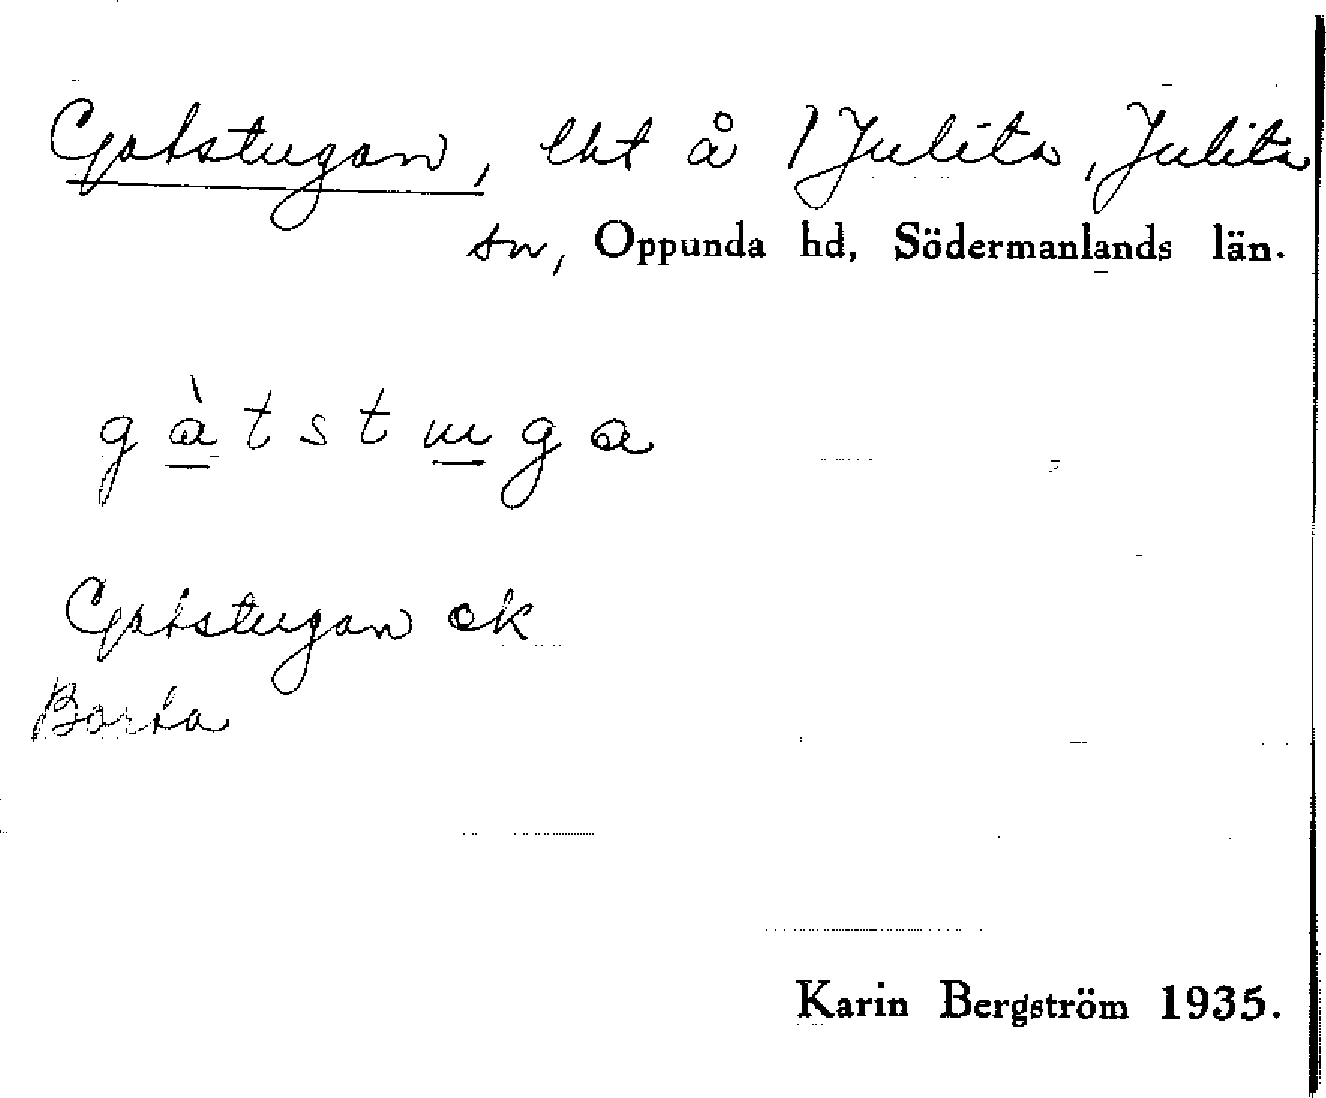 Gatstugan, lht å 1 Julita, Julita
sn, Oppunda hd, Södermanlands län.
gàtstuga
Gatstugan ek
Borta
Karin Bergström 1935.